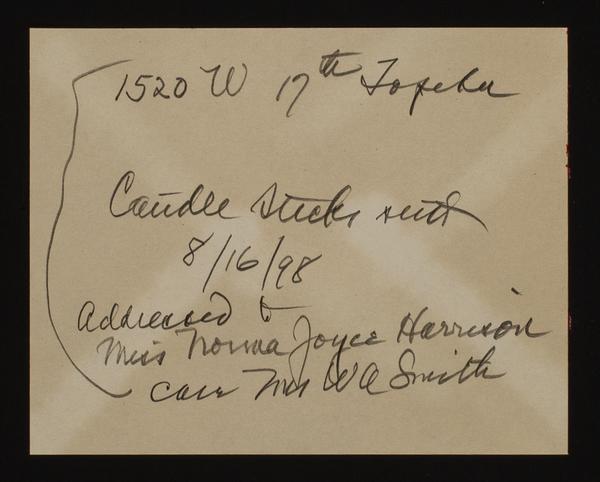 1520 W 17th Topeka
Candle sticks sent
8/16/98
Addressed to
Miss Norma Joyce Harrison
care Mrs W A Smith